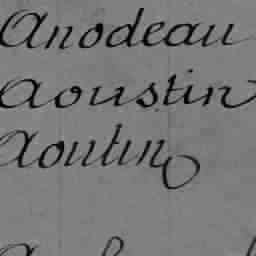 Anodeau
Aoustin
Aoutin